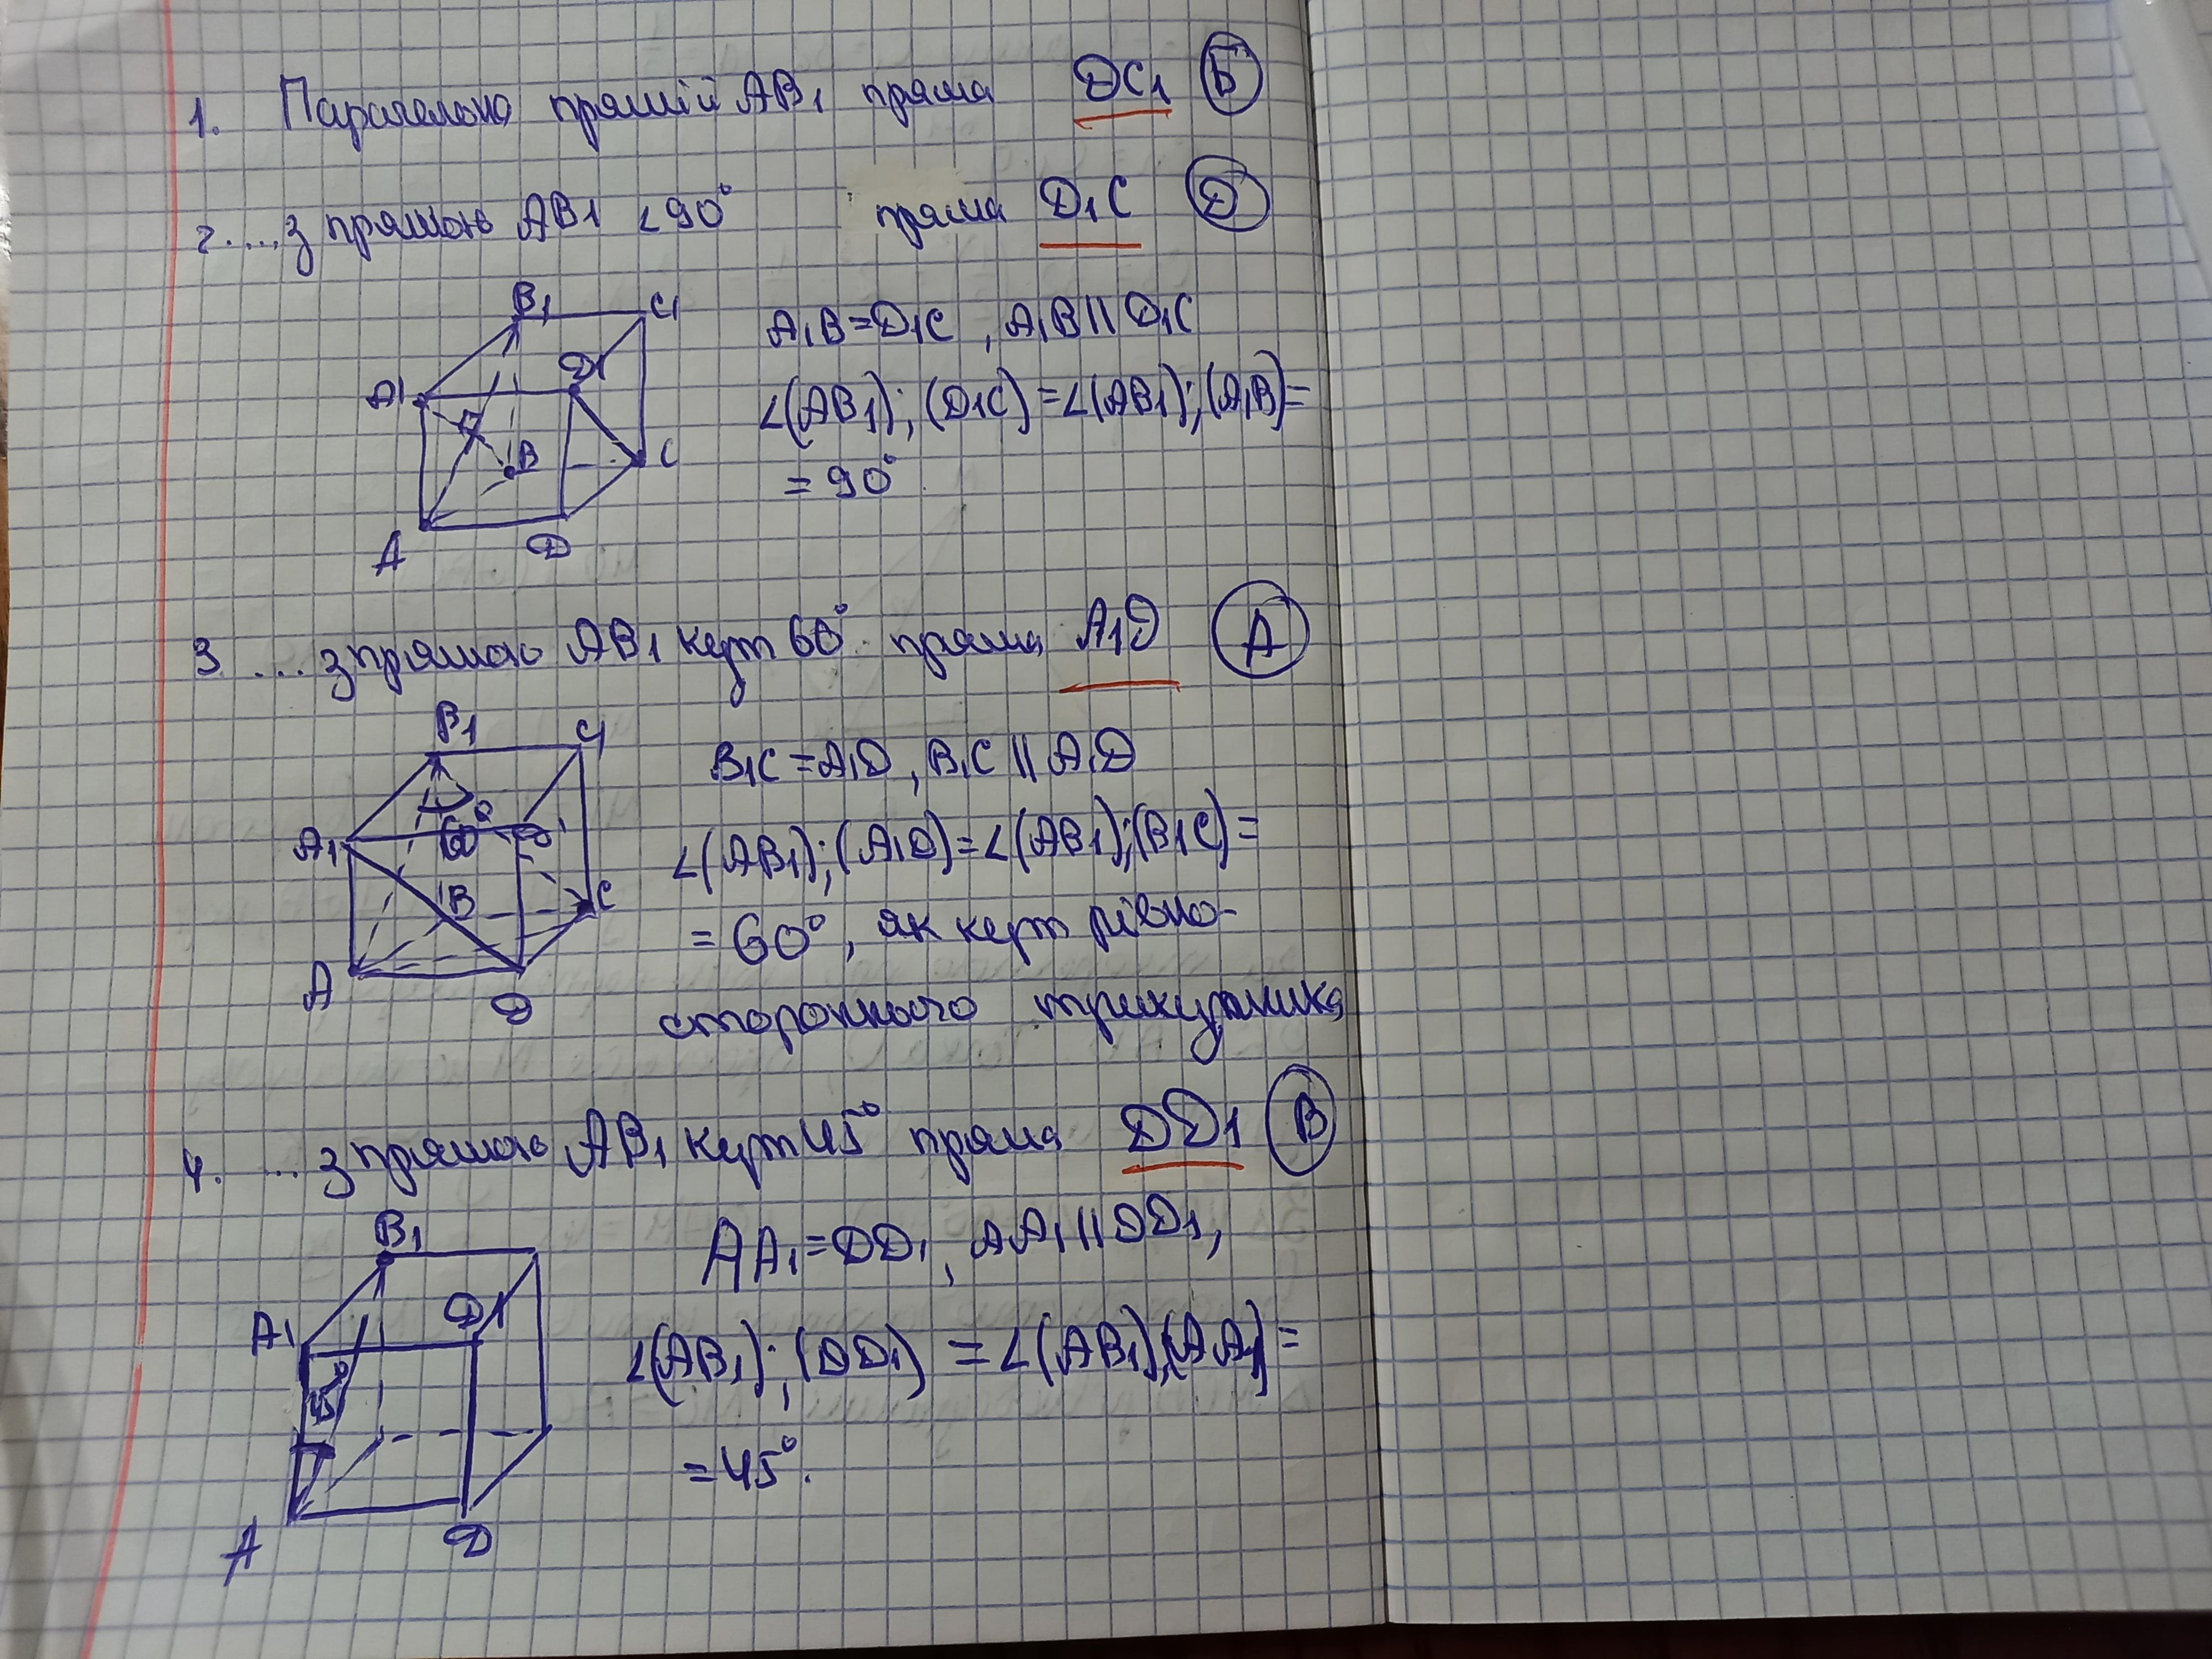 1. Паралельна прямій AB1 пряма DC1 Б
2. ... з прямою AB1 ∠90° пряма D1C D
B1 C1
A1 D1
B C
A D
A1B=D1C, A1B||D1C
∠(AB1);(D1C)=∠(AB1);(A1B)=
=90°
3. ... з прямою AB1 кут 60° пряма A1D A
B1 C1
A1 60° D1
B C
A D
B1C=A1D, B1C||A1D
∠(AB1);(A1D)=∠(AB1);(B1C)=
=60°, як кут рівно-
стороннього трикутника
4. ... з прямою AB1 кут 45° пряма DD1 B
B1
A1 D1
45°
A D
AA1=DD1, AA1||DD1,
∠(AB1);(DD1)=∠(AB1);(AA1)=
=45°.